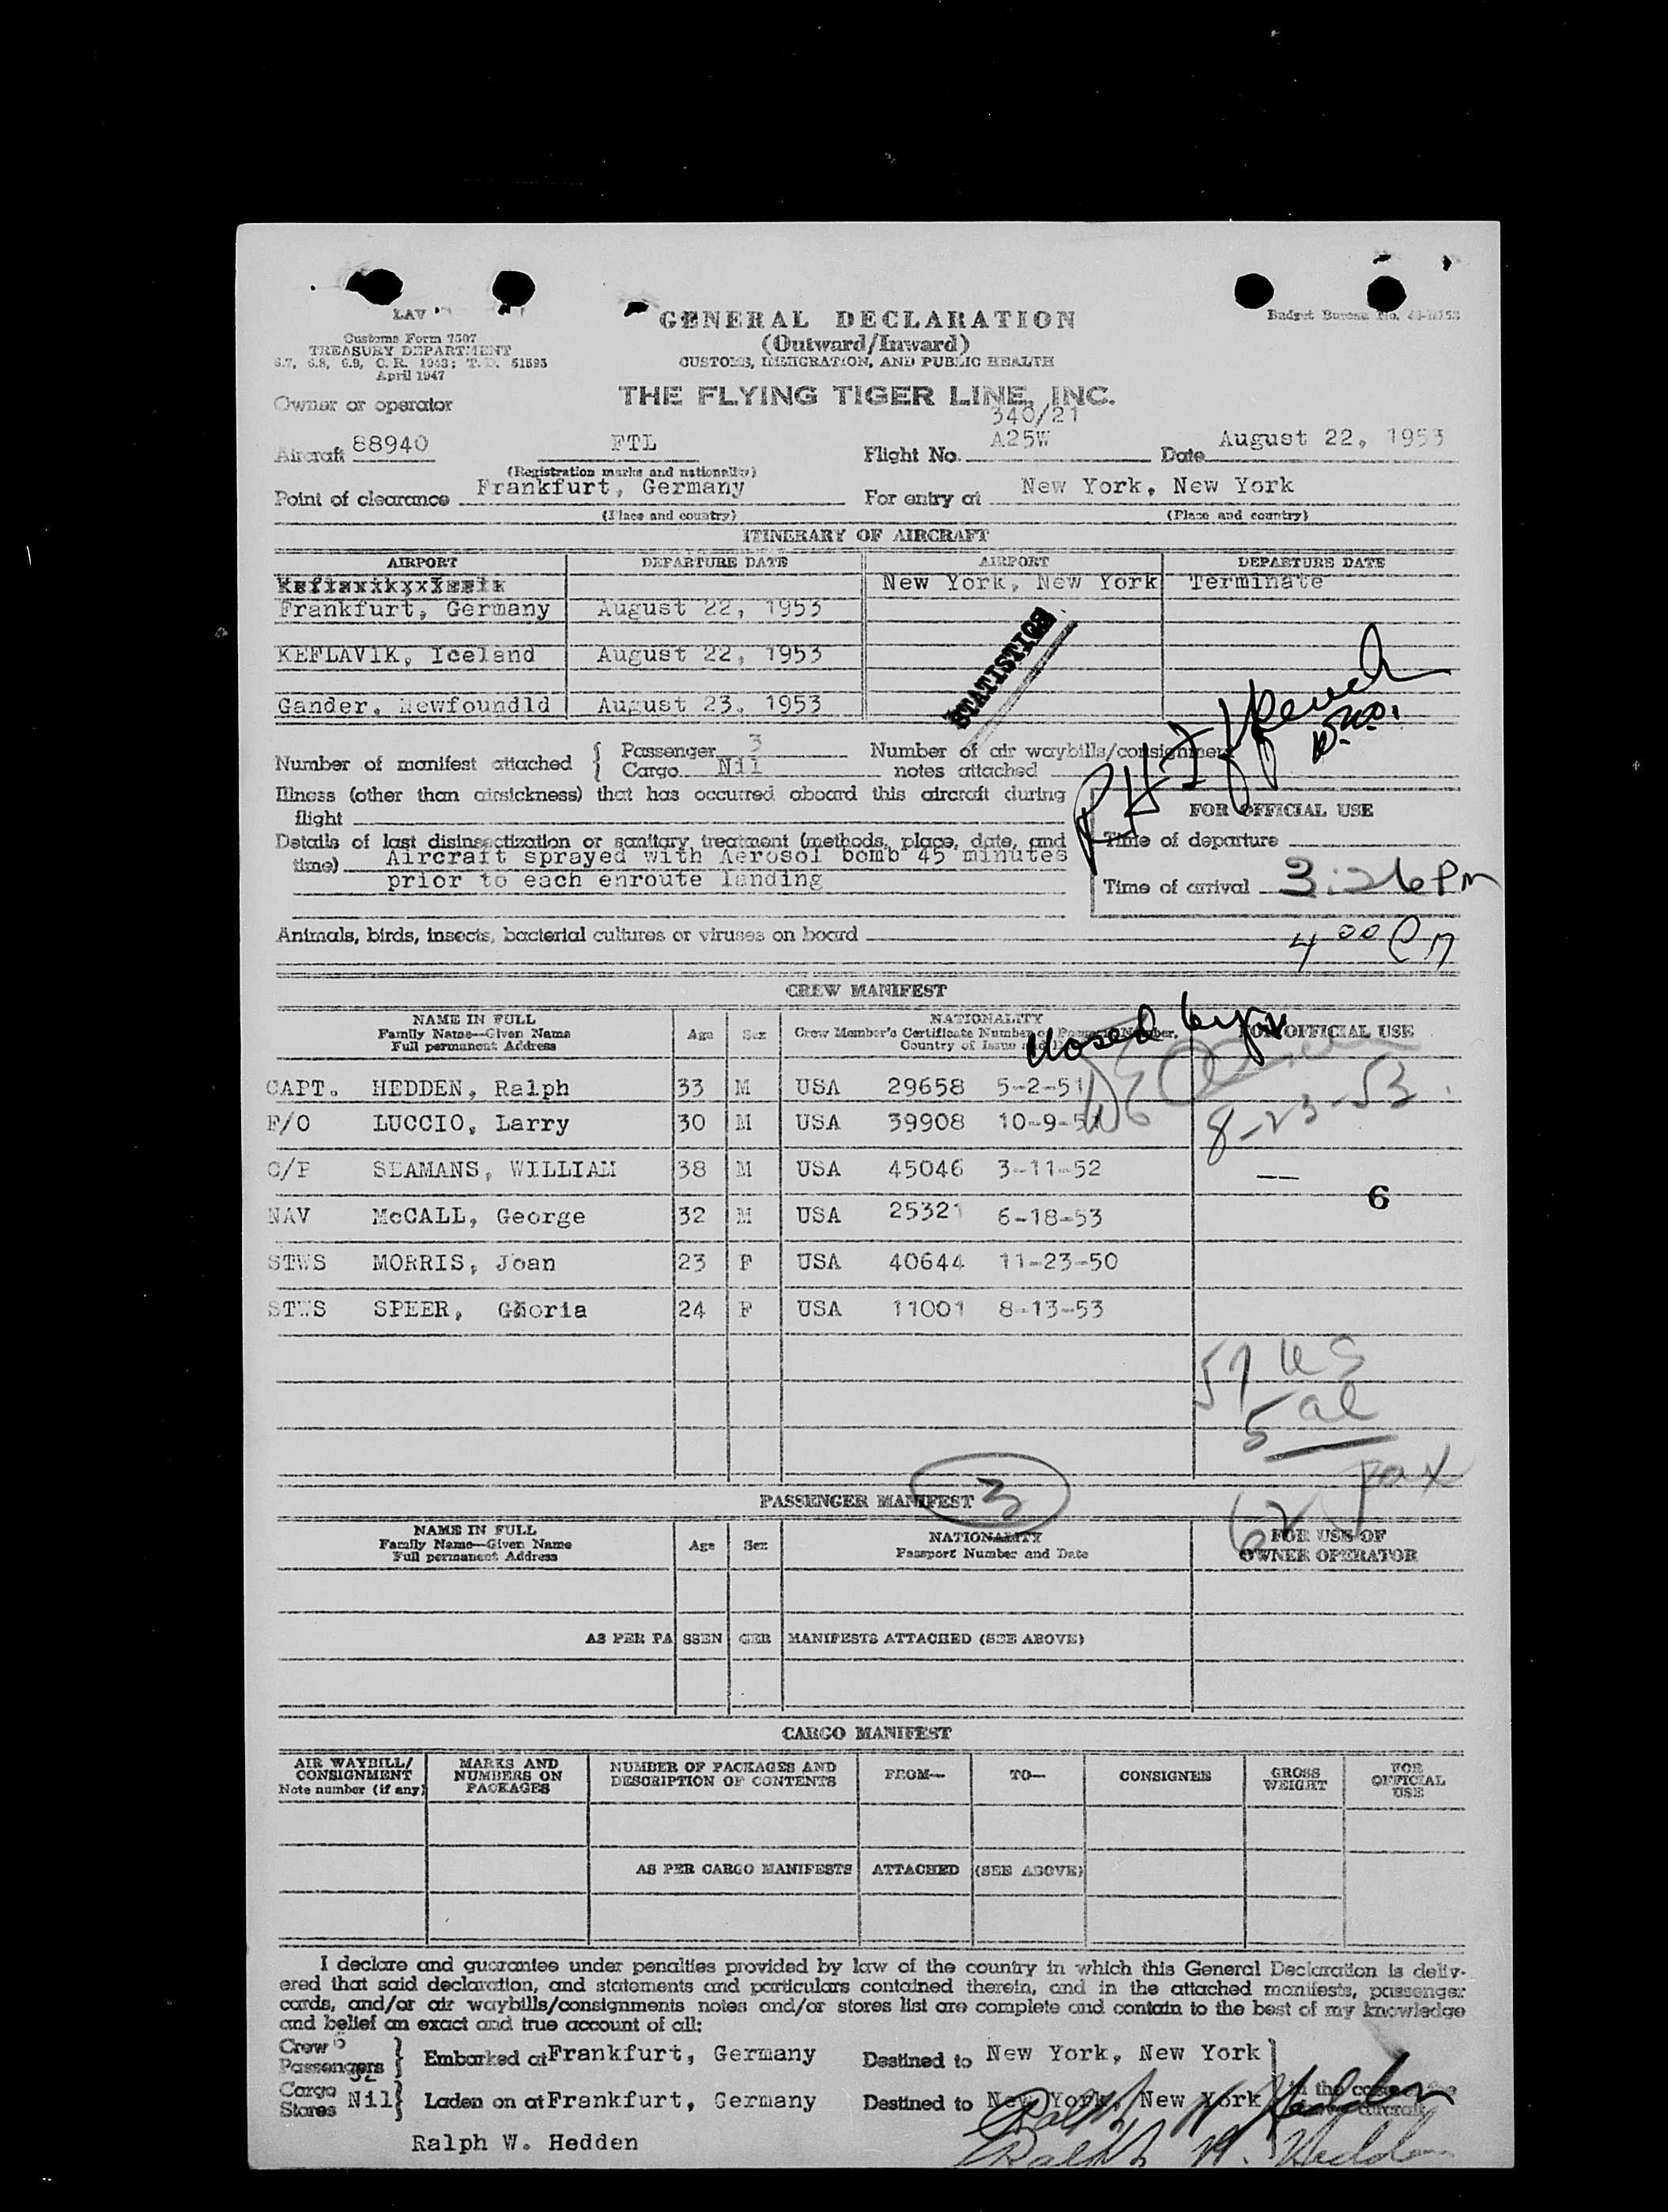 LAV
GENERAL DECLARATION
Budget Bureau No.
Customs Form 7507
(Outward/Inward)
TREASURY DEPARTMENT
CUSTOMS, IMMIGRATION, AND PUBLIC HEALTH
6.7, 6.8, 6.9, C. R. 1943; T. D. 51595
April 1947
THE FLYING TIGER LINE, INC.
Owner or operator
340/21
Aircraft 88940 FTL Flight No. A25W Date August 22, 1953
(Registration marks and nationality)
Point of clearance Frankfurt, Germany For entry at New York, New York
(Place and country) (Place and country)
ITINERARY OF AIRCRAFT
AIRPORT DEPARTURE DATE AIRPORT DEPARTURE DATE
New York, New York Terminate
Frankfurt, Germany August 22, 1953
STATISTICS
KEFLAVIK, Iceland August 22, 1953
Gander, Newfoundld August 23, 1953
Number of manifest attached { Passenger 3 Number of air waybills/consignment
Cargo Nil notes attached
Illness (other than airsickness) that has occurred aboard this aircraft during
flight
FOR OFFICIAL USE
Details of last disinsectization or sanitary treatment (methods, place, date, and
time) Aircraft sprayed with Aerosol bomb 45 minutes
prior to each enroute landing
Time of departure
Time of arrival 3:26 PM
Animals, birds, insects, bacterial cultures or viruses on board
4 00 PM
CREW MANIFEST
NAME IN FULL Age Sex NATIONALITY FOR OFFICIAL USE
Family Name—Given Name Crew Member's Certificate Number or Number,
Full permanent Address Country of Issue
closed
CAPT. HEDDEN, Ralph 33 M USA 29658 5-2-51
8-23-53
F/O LUCCIO, Larry 30 M USA 39908 10-9-51
SEAMANS, WILLIAM 38 M USA 45046 3-11-52
6
NAV McCALL, George 32 M USA 25321 6-18-53
STWS MORRIS, Joan 23 F USA 40644 11-23-50
STWS SPEER, Gloria 24 F USA 11001 8-13-53
57 US
5 al
62 pax
PASSENGER MANIFEST 3
NAME IN FULL Age Sex NATIONALITY FOR USE OF
Family Name—Given Name Passport Number and Date OWNER OPERATOR
Full permanent Address
AS PER PASSENGER MANIFESTS ATTACHED (SEE ABOVE)
CARGO MANIFEST
AIR WAYBILL/ MARKS AND NUMBER OF PACKAGES AND FROM— TO— CONSIGNEE GROSS FOR
CONSIGNMENT NUMBERS ON DESCRIPTION OF CONTENTS WEIGHT OFFICIAL
Note number (if any) PACKAGES USE
AS PER CARGO MANIFESTS ATTACHED (SEE ABOVE)
I declare and guarantee under penalties provided by law of the country in which this General Declaration is deliv-
ered that said declaration, and statements and particulars contained therein, and in the attached manifests, passenger
cards, and/or air waybills/consignments notes and/or stores list are complete and contain to the best of my knowledge
and belief an exact and true account of all:
Crew 6
Passengers } Embarked at Frankfurt, Germany Destined to New York, New York
Cargo
Stores Nil } Laden on at Frankfurt, Germany Destined to New York, New York
Ralph W. Hedden
Ralph W. Hedden
Ralph W. Hedden